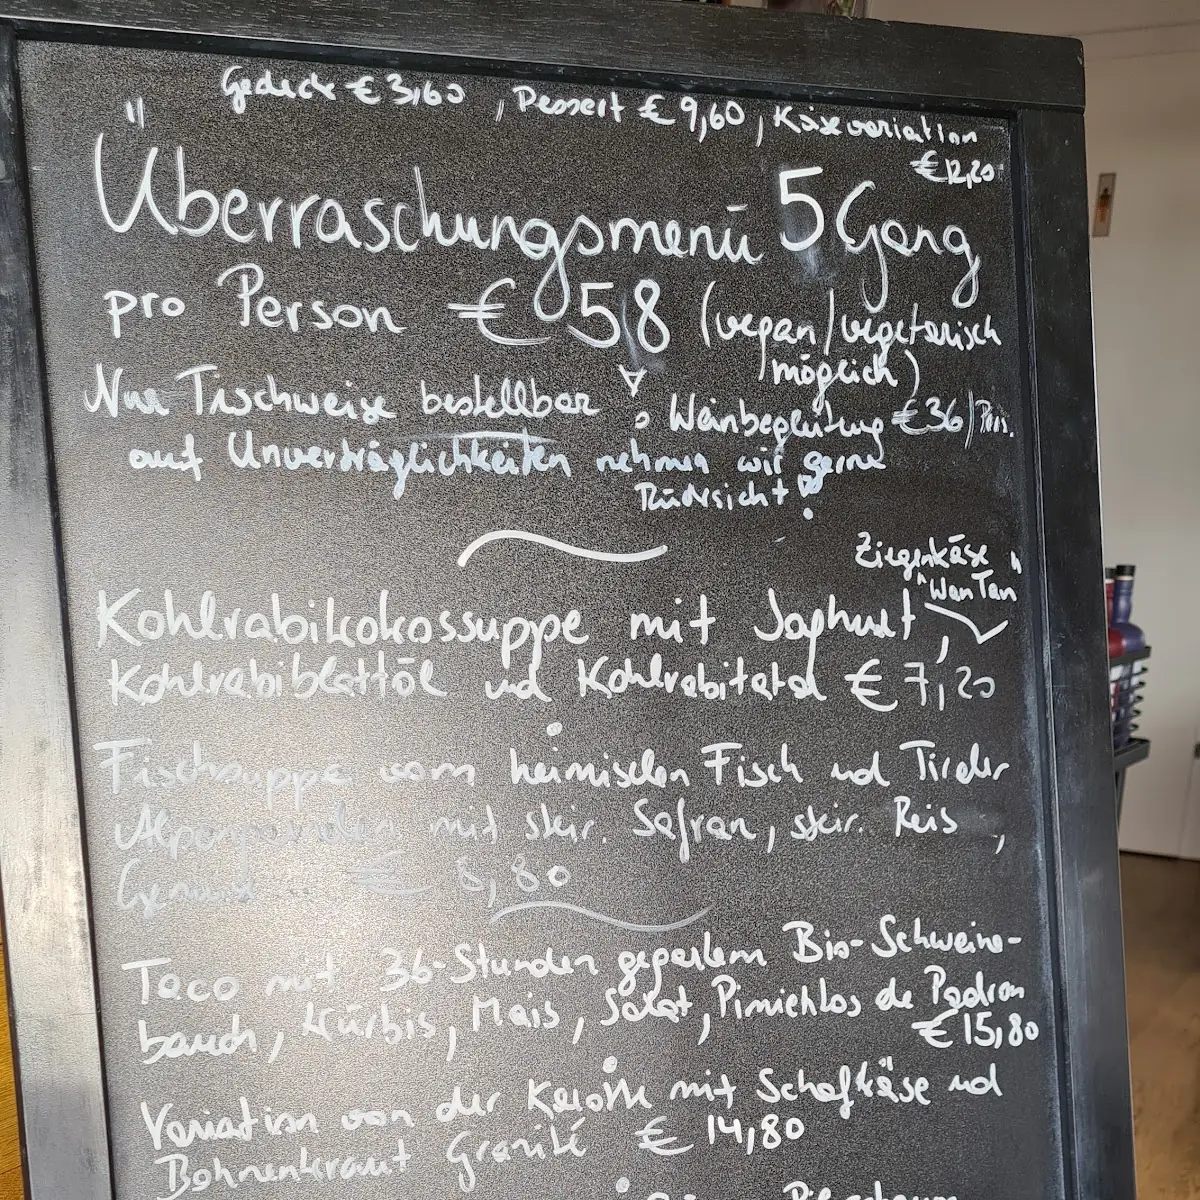 Gedeck € 3,60 , Dessert € 9,60 , Käsevariation
€ 12,20
Überraschungsmenü 5 Gang
pro Person € 58 (vegan/vegetarisch
möglich)
Nur Tischweise bestellbar Weinbegleitung € 36/Pers.
auf Unverträglichkeiten nehmen wir gerne
Rücksicht!
Ziegenkäse
"Wan Tan"
Kohlrabikokossuppe mit Joghurt,
Kohlrabiblattöl und Kohlrabitatar € 7,20
Fischsuppe vom heimischen Fisch und Tiroler
mit steir. Safran, steir. Reis,
€ 8,80
Taco mit 36-Stunden gegartem Bio-Schweine-
bauch, Kürbis, Mais, Salat, Pimientos de Padron
€ 15,80
Variation von der Karotte mit Schafkäse und
Bohnenkraut Granité € 14,80